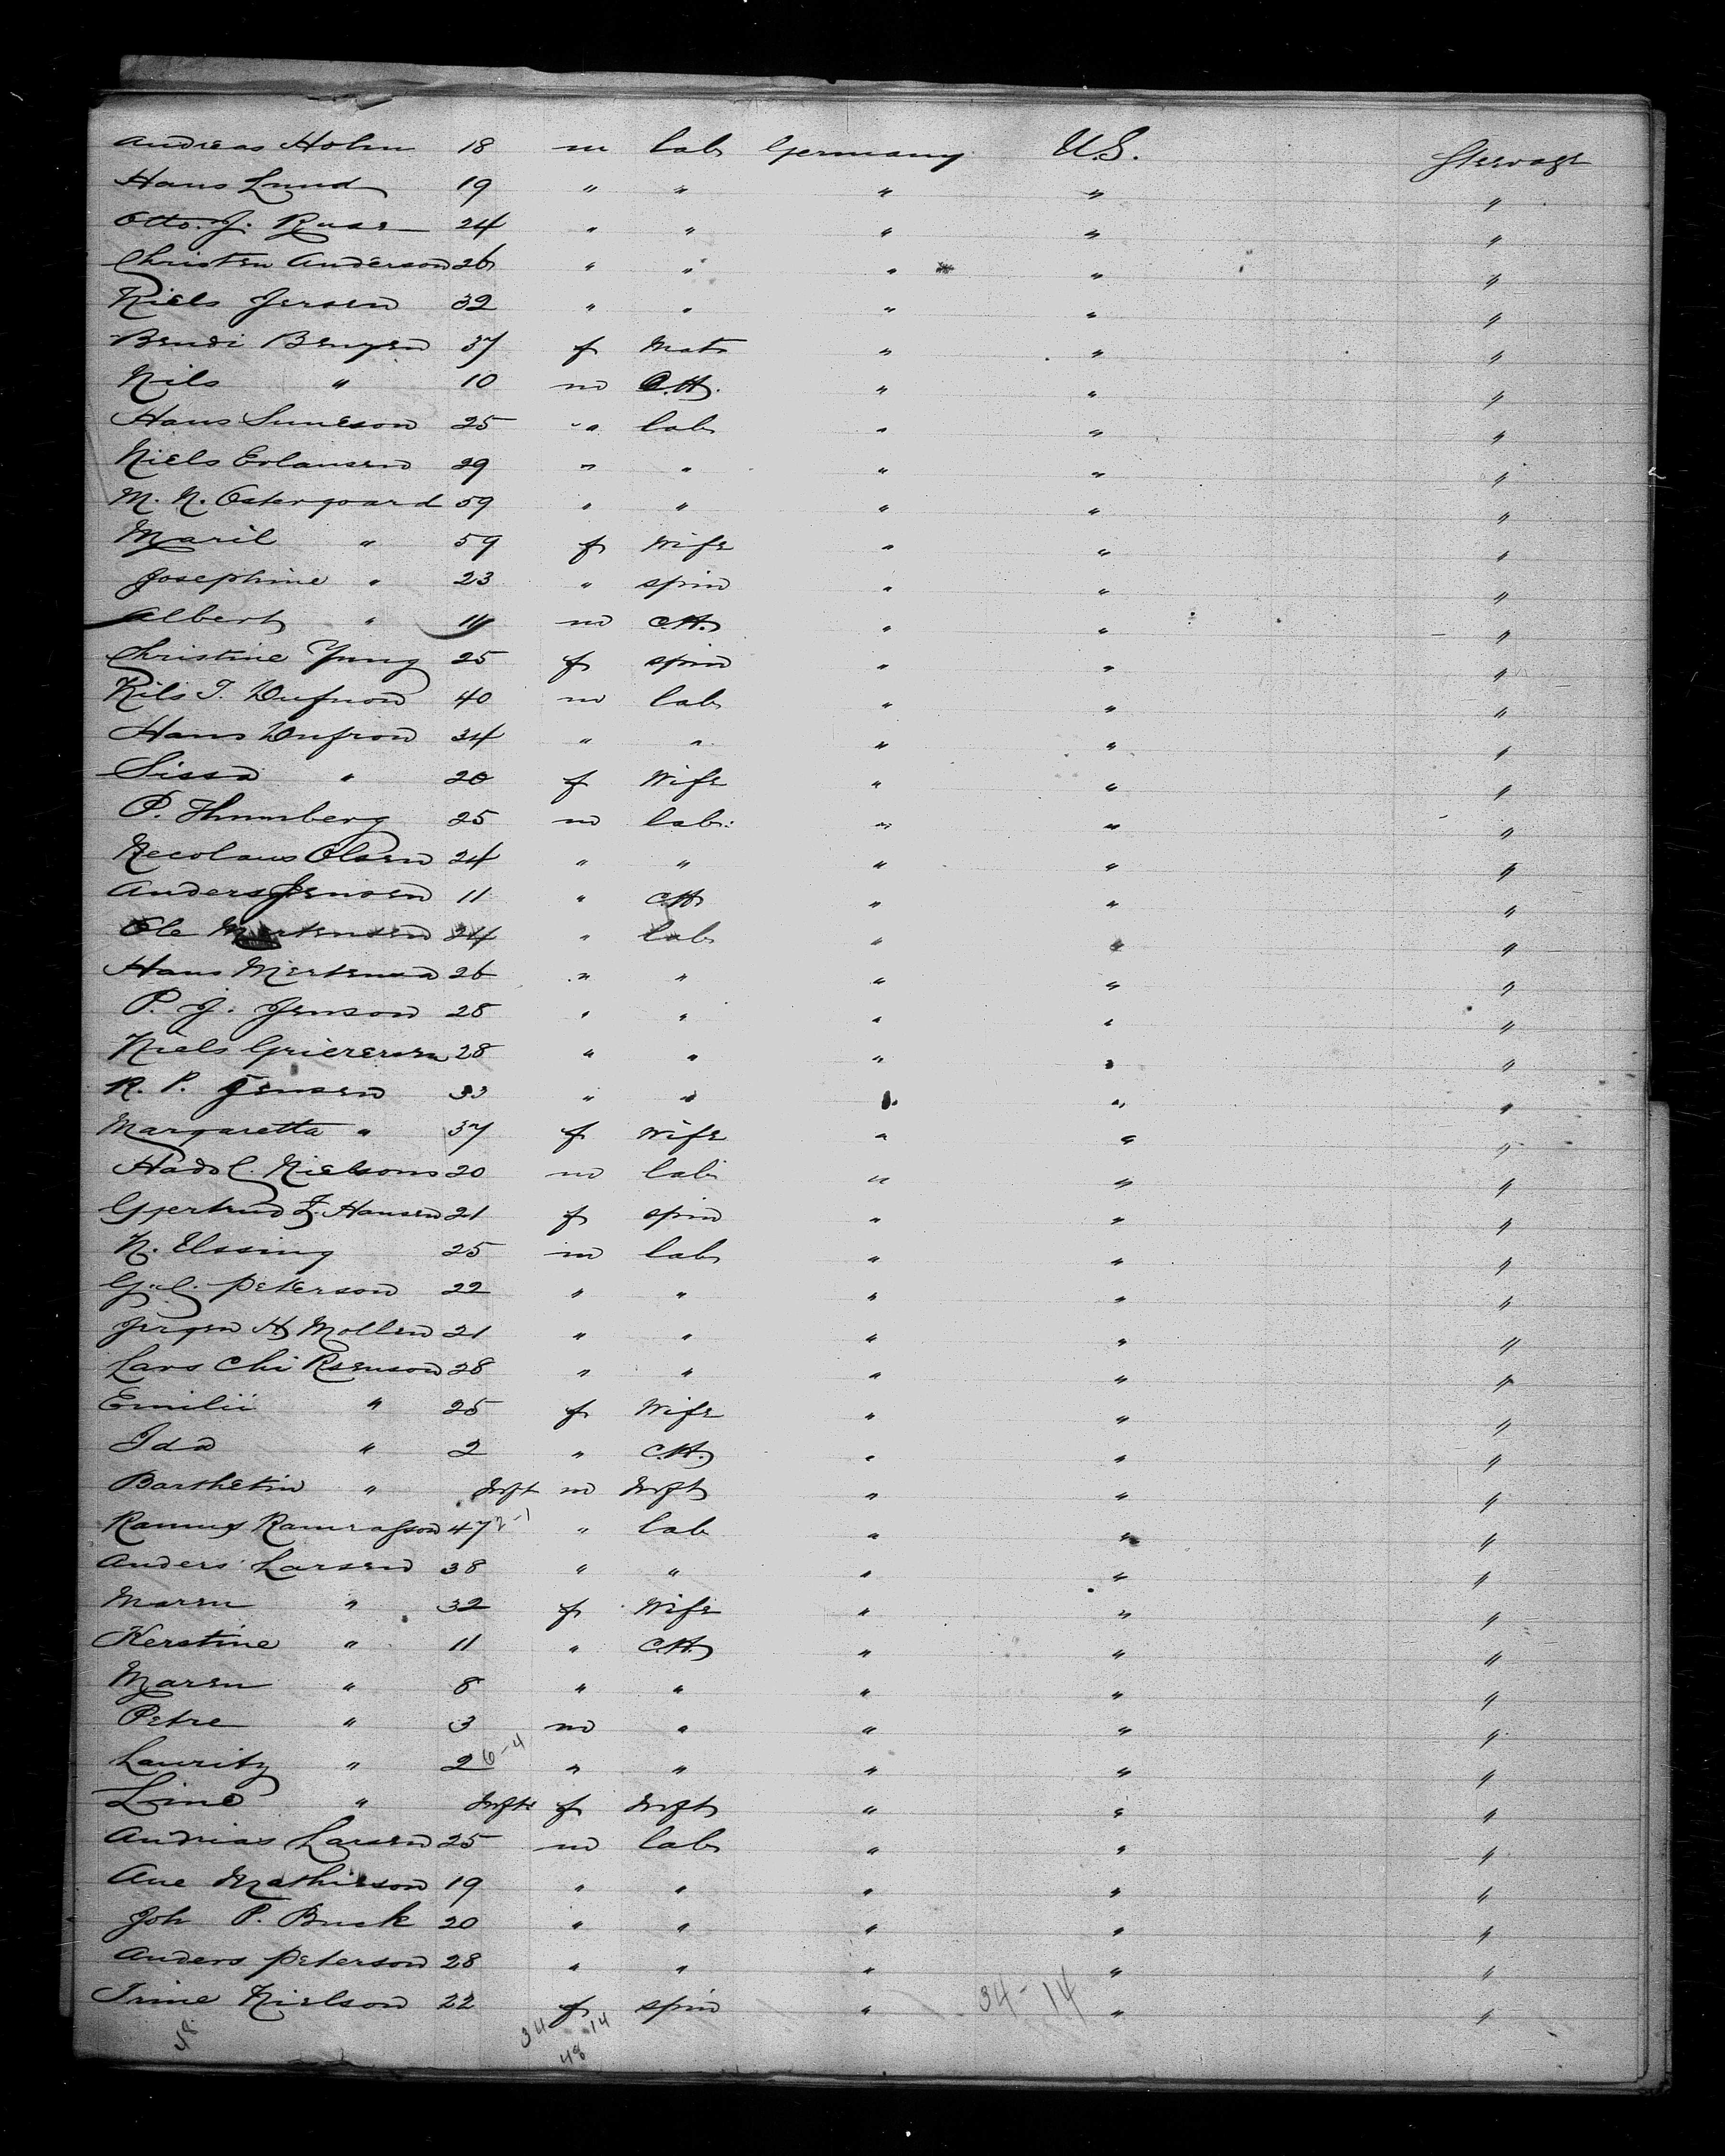 Andreas Holm 18 m lab Germany U.S. Steerage
Hans Lund 19 " " " " "
Otto. J. Ruse 24 " " " " "
Christen Anderson 26 " " " " "
Niels Jersen 32 " " " " "
Bendi Benzen 37 f Mat " " "
Nils " 10 m C.H. " " "
Hans Suneson 25 " lab " " "
Niels Erlausen 29 " " " " "
M. N. Ostergoard 59 " " " " "
Maril " 59 f Wife " " "
Josephine " 23 " spin " " "
Albert " 11 m C.H. " " "
Christine Yung 25 f spin " " "
Nils T. 40 m lab " " "
Hans 34 " " " " "
Sissa " 20 f Wife " " "
P. Thumberg 25 m lab: " " "
Necolaus Olsen 24 " " " " "
Anders Jensen 11 " C.H. " " "
Ole Mortensen 24 " lab " " "
Hans 26 " " " " "
P. J. Jenson 28 " " " " "
Niels 28 " " " " "
R. P. Jensen 33 " " " " "
Margaretta " 37 f Wife " " "
Nielsons 20 m lab " " "
Gjertrud Z. Hansen 21 f spin " " "
N. Ussing 25 m lab " " "
G. C. Peterson 22 " " " " "
Jergen H Mollen 21 " " " " "
Lars Chi Rsenson 28 " " " " "
Emilii " 25 f Wife " " "
Ida " 2 " C.H. " " "
Barthetin " Inft m Inft " " "
Rasmus 47 2-1 " lab " " "
Anders Larsen 38 " " " " "
Maren " 32 f Wife " " "
Kerstine " 11 " C.H. " " "
Maren " 8 " " " " "
Petre " 3 m " " " "
Lauritz " 2 6-4 " " " " "
Line " Inft f Inft " " "
Andrias Larsen 25 m lab " " "
Ane Mathieson 19 " " " " "
Joh P. Buck 20 " " " " "
Anders Peterson 28 " " " " "
Trine Nielson 22 f spin " 34-14 " "
48 34 14
48